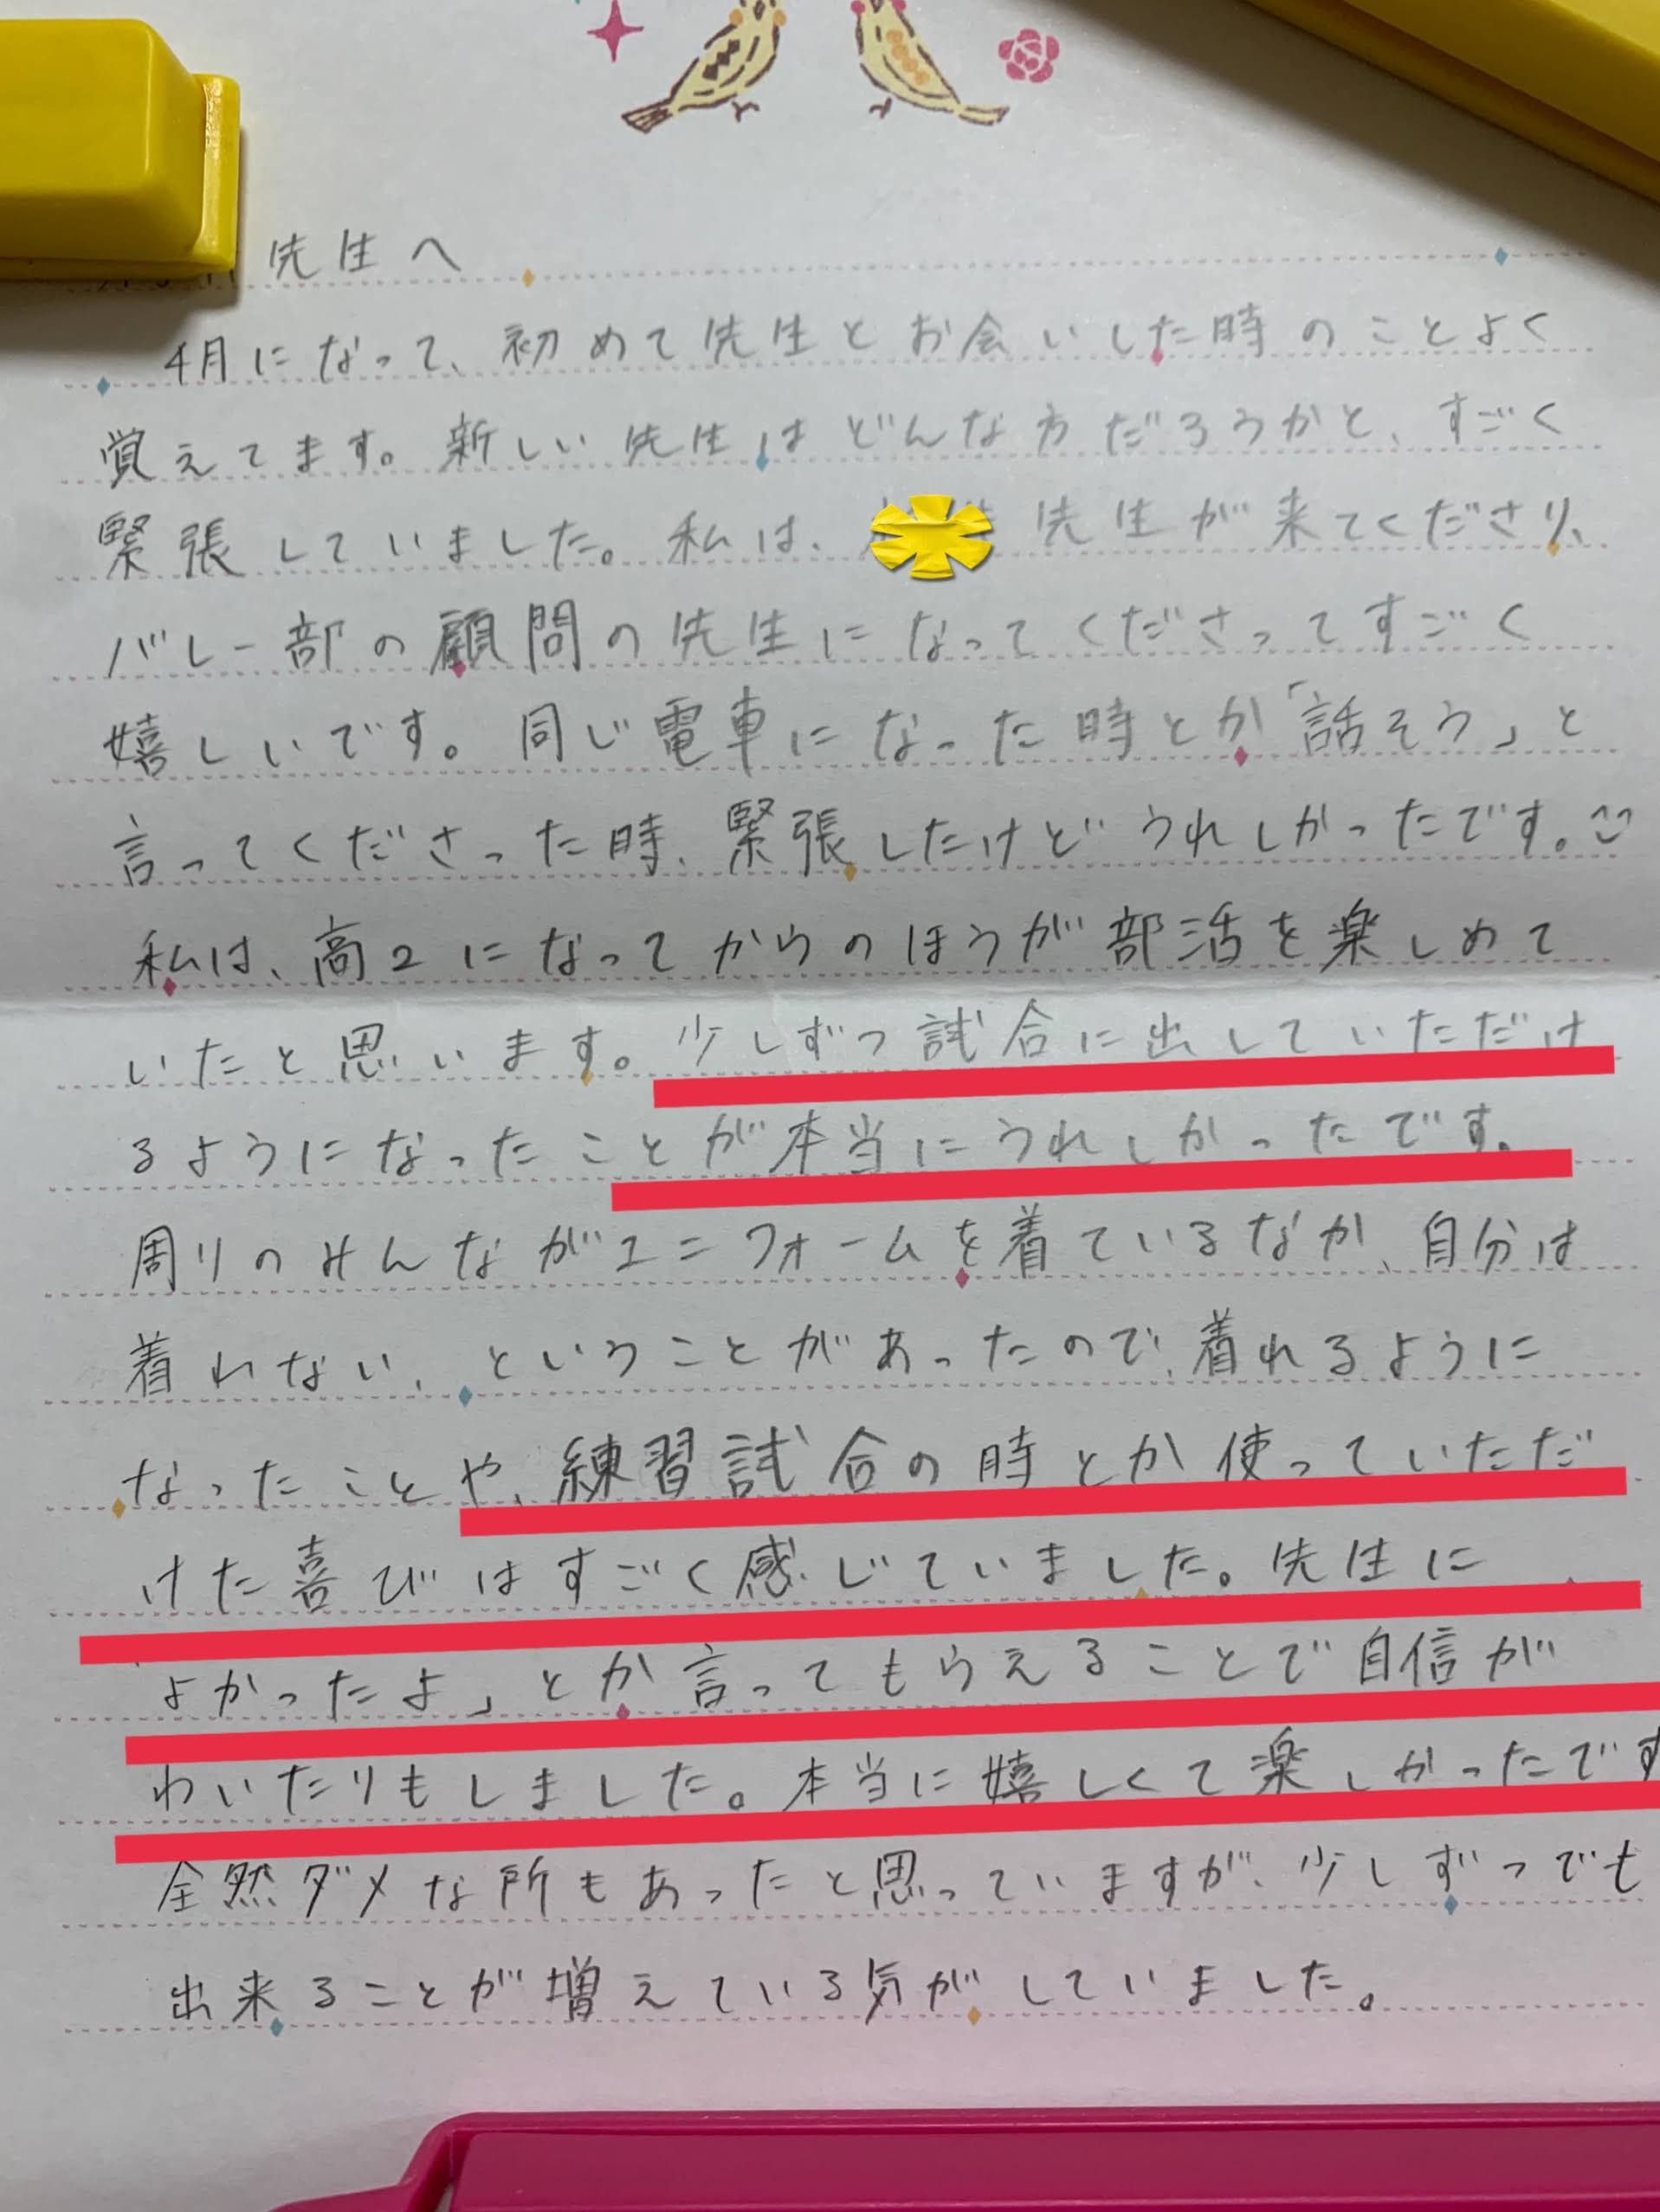 先生へ
4月になって、初めて先生とお会いした時のことよく
覚えてます。新しい先生はどんな方だろうかと、すごく
緊張していました。私は、先生が来てくださり、
バレー部の顧問の先生になってくださってすごく
嬉しいです。同じ電車になった時とか「話そう」と
言ってくださった時、緊張したけどうれしかったです。
私は、高2になってからのほうが部活を楽しめて
いたと思います。少しずつ試合に出していただけ
るようになったことが本当にうれしかったです。
周りのみんながユニフォームを着ているなか、自分は
着れない、ということがあったので、着れるように
なったことや、練習試合の時とか使っていただ
けた喜びはすごく感じていました。先生に
よかったよ」とか言ってもらえることで自信が
わいたりもしました。本当に嬉しくて楽しかったです
全然ダメな所もあったと思っていますが、少しずつでも
出来ることが増えている気がしていました。